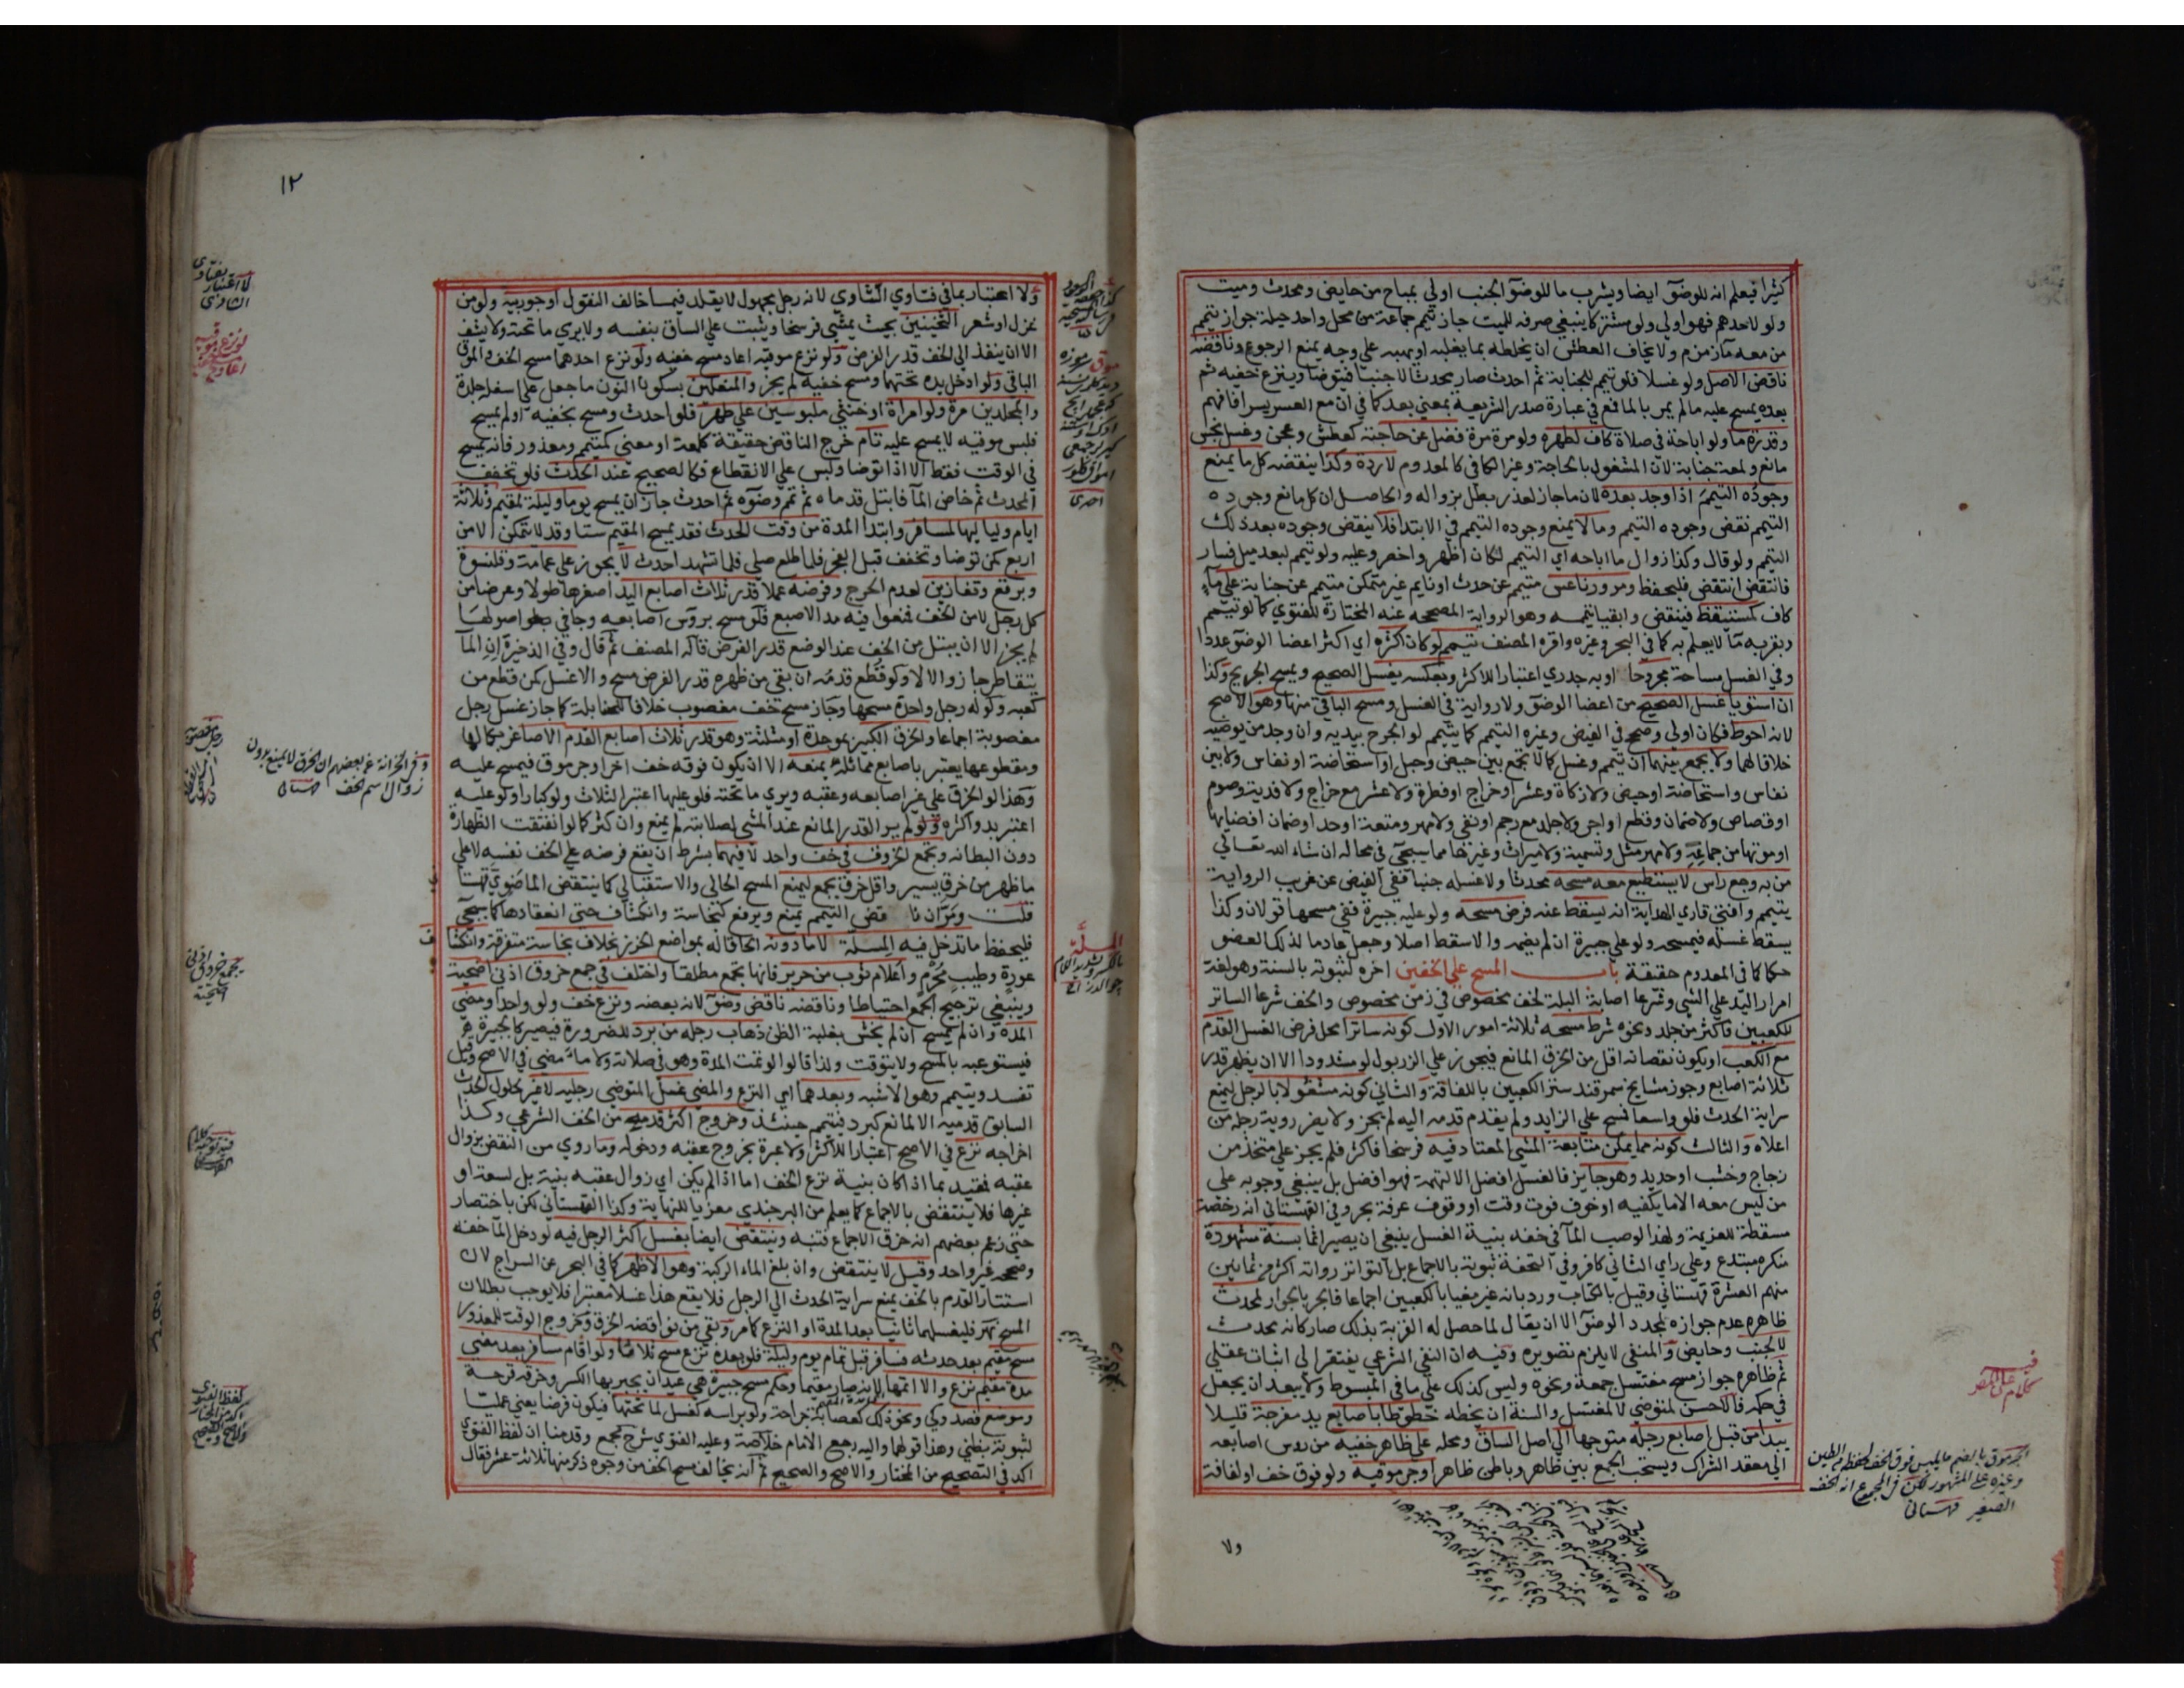 كثيرا فيعلم انه للوضوٓ ايضا ويشرب ما للوضوٓ الجنب اولي بمباح من حايض ومحدث وميت
ولو لاحدهم فهو اولي ولو مشتركا ينبغي صرفه للميت جاز تيمم جماعة من محل واحد حيلة جواز تيمم
من معه مآ زمزم ولا يخاف العطش ان يخلطه بما يغلبه او يهبه علي وجه يمنع الرجوع وناقضه
ناقض الاصل ولو غسلا فلو تيمم للجنابة ثم احدث صار محدثا لا جنبا فيتوضا وينزع خفيه ثم
بعده يمسح عليه ما لم يمر بالما فمع في عبارة صدر الشريعة بمعني بعد كما في ان مع العسر يسرا فافهم
وقدرة ما ولو اباحة في صلاة كاف لطهره ولو مرة مرة فضل عن حاجته كعطش وعجن وغسل نجس
مانع ولمعة جنابة لان المشغول بالحاجة وغير الكافي كالمعدوم لا ردة وكذا ينقضه كل ما يمنع
وجوده التيمم اذا وجد بعده لان ما جاز لعذر بطل بزواله والحاصل ان كل ما منع وجوده
التيمم نقض وجوده التيمم وما لا يمنع وجوده التيمم في الابتدا فلا ينقض وجوده بعد ذلك
التيمم ولو قال وكذا زوال ما اباحه اي التيمم لكان اظهر واخصر وعليه ولو تيمم لبعد ميل فسار
فانتقص انتقض فليحفظ ومرور ناعس متيمم عن حدث او نايم غير متمكن متيمم عن جنابة علي مآ
كاف كمستيقظ فينتقض وابقيا تيممه وهو الرواية المصححه عنه المختارة للفتوي كما لو تيمم
وبقربه مآ لا يعلم به كما في البحر وغيره واقره المصنف تيمم لو كان اكثره اي اكثر اعضا الوضوٓ عددا
وفي الغسل مساحة مجروحا او به جدري اعتبارا للاكثر وبعكسه يغسل الصحيح ويمسح الجريح وكذا
ان استويا غسل الصحيح من اعضا الوضوٓ ولا رواية في الغسل ومسح الباقي منها وهو الاصح
لانه احوط فكان اولي وصحح في الفيض وغيره التيمم كما يتيمم لو الجرح بيديه وان وجد من يوضيه
خلافا لهما ولا يجمع بينهما اي تيمم وغسل كما لا يجمع بين حيض وحبل او استحاضة او نفاس ولا بين
نفاس واستحاضة او حيض ولا زكاة وعشر او خراج او فطرة ولا عشر مع خراج ولا فدية وصوم
او قصاص ولا ضمان وقطع او اجر ولا جلد مع رجم او نفي ولا مهر ومتعة او حد او ضمان افضايها
او موتها من جماعه ولا مهر مثل وتسمية ولا ميراث وغيرها مما يسيجيٓ في محاله ان شاء الله تعالي
من به وجع راس لا يستطيع معه مسحه محدثا ولا غسله جنبا ففي الفيض عن غريب الرواية
يتيمم وافتي قاري الهداية انه يسقط عنه فرض مسحه ولو عليه جبيرة ففي مسحها قولان وكذا
يسقط غسله فيمسحه ولو علي جبيرة ان لم يضره والا سقط اصلا وجعل عادما لذلك العضو
حكما كما في المعدوم حقيقة باب المسح علي الخفين اخره لثبوته بالسنة وهو لغة
امرار اليد علي الشي وشرعا اصابة البلة لخف مخصوص في زمن مخصوص والخف شرعا الساتر
للكعبين فاكثر من جلد ونحوه شرط مسحه ثلاثة امور الاول كونه ساترا محل فرض الغسل القدم
مع الكعب او يكون نقصانه اقل من الخرق المانع فيجوز علي الزربول لو مشدودا الا ان يظهر قدر
ثلاثة اصابع وجوز مشايخ سمرقند ستر الكعبين باللفافة والثاني كونه مشغولا بالرجل ليمنع
سراية الحدث فلو واسعا فمسح علي الزايد ولم يقدم قدمه اليه لم يجز ولا يضر روية رجله من
اعلاه والثالث كونه مما يمكن متابعة المشي المعتاد فيه فرسخا فاكثر فلم يجز علي متخذ من
زجاج وخشب او حديد وهو جايز فالغسل افضل الا لتهمة فهو افضل بل ينبغي وجوبه علي
من ليس معه الا ما يكفيه او خوف فوت وقت او وقوف عرفة بحر وفي القهستاني انه رخصة
مسقطة للعزيمة ولهذا لو صب المآ في خفه بنية الغسل ينبغي ان يصير اثما بسنة مشهورة
منكره مبتدع وعلي راي الثاني كافر وفي التحفة ثبوته بالاجماع بل التواتر رواته اكثر من ثمانين
منهم العشرة قهستاني وقيل بالكتاب ورد بانه غير مغيا بالكعبين اجماعا فالجر بالجوار لمحدث
ظاهره عدم جوازه لمجدد الوضوٓ الا ان يقال لما حصل له القربة بذلك صار كانه محدث
لا لجنب وحايض والمنفي لا يلزم تصويره وفيه ان النفي الشرعي يفتقر الي اثبات عقلي
ثم ظاهره جواز مسح مغتسل جمعة ونحوه وليس كذلك علي ما في المبسوط ولا يبعد ان يجعل
في حكمه فالاحسن لمتوضي لا لمغتسل والسنة ان يخطه خطوطا باصابع يد مفرجة قليلا
يبدا من قبل اصابع رجله متوجها الي اصل الساق ومحله علي ظاهر خفيه من روس اصابعه
الي معقد الشراك ويستحب الجمع بين ظاهر وباطن ظاهر او جرموقيه ولو فوق خف او لفافة
فيه كلام علي المصر
الجرموق بالضم ما يلبس فوق الخف لحفظه من الطين
وغيره علي المشهور لكن في المجموع انه الخف
الصغير قهستاني
ولا
١٢
ولا اعتبار بما في فتاوي الشاوي لانه رجل مجهول لا يقلد فيما خالف النقول او جوربيه ولو من
غزل او شعر الثخينين بحيث يمشي فرسخا ويثبت علي الساق بنفسه ولا يري ما تحته ولا يشف
الا ان ينفذ الي الخف قدر الفرض ولو نزع موقيه اعاد مسح خفيه ولو نزع احدهما مسح الخف والموق
الباقي ولو ادخل يده تحتهما ومسح خفيه لم يجز والمنعلين بسكون النون ما جعل علي اسفله جلدة
والمجلدين مرة ولو امراة او خنثي ملبوسين علي طهر فلو احدث ومسح بخفيه او لم يمسح
فلبس موقيه لا يمسح عليه تام خرج الناقض حقيقة كلمعة او معني كتيمم ومعذور فانه يمسح
في الوقت فقط الا اذا توضا ولبس علي الانقطاع فكالصحيح عند الحدث فلو تخفف
المحدث ثم خاض المآ فابتل قدماه ثم تمم وضوٓه ثم احدث جاز ان يمسح يوما وليلة لمقيم وثلاثة
ايام ولياليها لمسافر وابتدا المدة من وقت الحدث فقد يمسح المقيم ستا وقد لا يتمكن الا من
اربع كمن توضا وتخفف قبل الفجر فلما طلع صلي فلما تشهد احدث لا يجوز علي عمامة وقلنسوة
وبرقع وقفازين لعدم الحرج وفرضه عملا قدر ثلاث اصابع اليد اصغرها طولا وعرضا من
كل رجل لا من الخف فمنعوا فيه مد الاصبع فلو مسح بروٓس اصابعه وجافي اصولها
لم يجز الا ان يبتل من الخف عند الوضع قدر الفرض قاله المصنف ثم قال وفي الذخيرة ان المآ
يتقاطر جاز والا لا ولو قطع قدمه ان بقي من ظهره قدر الفرض مسح والا غسل كمن قطع من
كعبه ولو له رجل واحدة مسحها وجاز مسح خف مغصوب خلافا للحنابلة كما جاز غسل رجل
مغصوبة اجماعا والخرق الكبير بموحدة او مثلثة وهو قدر ثلاث اصابع القدم الاصاغر بكمالها
ومقطوعها يعتبر باصابع مماثلة يمنعه الا ان يكون فوقه خف اخر او جرموق فيمسح عليه
وهذا لو الخرق علي غير اصابعه وعقبه ويري ما تحته فلو عليها اعتبر الثلاث ولو كبارا ولو عليه
اعتبر بدو اكثره ولو لم ير القدر المانع عند المشي لصلابته لم يمنع وان كثر كما لو انفتقت الظهارة
دون البطانه وتجمع الخروق في خف واحد لا فيهما بشرط ان يقع فرضه علي الخف نفسه لا علي
ما ظهر من خرق يسير واقل خرق يجمع ليمنع المسح الحالي والاستقبالي كما ينتقض الماضوي قهستا
قلت ومر ان نا قض التيمم يمنع ويرفع كنجاسة وانكشاف حتي انعقادها كما سيجيٓ
فليحفظ ما تدخل فيه المسلة لا ما دونه الحاقا له بمواضع الخرز بخلاف نجاسة متفرقة وانكشا ف
عورة وطيب محرم واعلام ثوب من حرير فانها تجمع مطلقا واختلف في جمع خروق اذني اضحية
وينبغي ترجيح الجمع احتياطا وناقضه ناقض وضوٓ لانه بعضه ونزع خف ولو واحدا ومضي
المدة وان لم يمسح ان لم يخش بغلبة الظن ذهاب رجله من برد للضرورة فيصير كالجبيرة
فيستوعبه بالمسح ولا يتوقت ولذا قالوا لو تمت المدة وهو في صلاته ولا مآ مضي في الاصح وقيل
تفسد ويتيمم وهو الاشبه وبعدهما اي النزع والمضي غسل المتوضي رجليه لا غير لحلول الحدث
السابق قدميه الا لمانع كبرد فيتيمم حينئذ وخروج اكثر قدميه من الخف الشرعي وكذا
اخراجه نزع في الاصح اعتبارا للاكثر ولا عبرة بخروج عقبه ودخوله وما روي من النقض بزوال
عقبه فمقيد بما اذا كان بنية نزع الخف اما اذا لم يكن اي زوال عقبه بنية بل لسعة او
غيرها فلا ينتقض بالاجماع كما يعلم من البرجندي معزيا للنهاية وكذا القهستاني لكن باختصار
حتي زعم بعضهم انه خرق الاجماع فتنبه وينتقض ايضا بغسل اكثر الرجل فيه لو دخل المآ خفه
وصححه غير واحد وقيل لا ينتقض وان بلغ الماء الركبة وهو الاظهر كما في البحر عن السراج لان
استتار القدم بالخف يمنع سراية الحدث الي الرجل فلا يقع هذا غسلا معتبرا فلا يوجب بطلان
المسح نهر فليغسلهما ثانيا بعد المدة او النزع كما مر وبقي من نواقضه الخرق وخروج الوقت للمعذور
مسح مقيم بعد حدثه فسافر قبل تمام يوم وليلة فلو بعده نزع مسح ثلاثا ولو اقام مسافر بعد مضي
مدة مقيم نزع والا اتمها لانه صار مقيما وحكم مسح جبيرة هي عيدان يجبر بها الكسر وخرقة قرحة
وموضع فصد وكي ونحو ذلك كعصابة جراحة ولو براسه كغسل لما تحتها فيكون فرضا يعني عمليا
لثبوته بظني وهذا قولهما واليه رجع الامام خلاصة وعليه الفتوي شرح مجمع وقدمنا ان لفظ الفتوي
اكد في التصحيح من المختار والاصح والصحيح ثم انه يخالف مسح الخف من وجوه ذكر منها ثلاثة عشر فقال
لا اعتبار بفتاوي الشاوي
لو نزع موقيه اعاد مسح خفيه
وفي الخزانة عن بعضهم ان الخرق لا يمنع بدون
زوال اسم الخف قهستاني
المسلة
جمع خروق اذني
اضحية
لفظ الفتوي
اكد من المختار
والاصح والصحيح